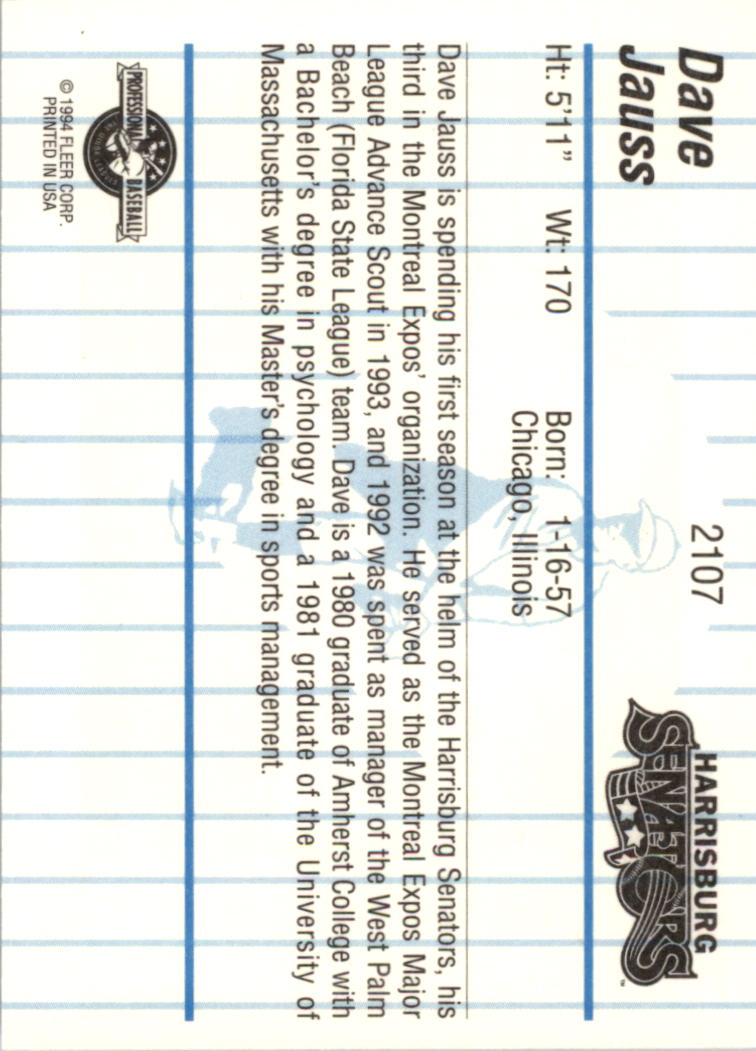 Dave
Jauss
2107
HARRISBURG
SENATORS
™
Ht: 5'11" Wt: 170 Born: 1-16-57
Chicago, Illinois
Dave Jauss is spending his first season at the helm of the Harrisburg Senators, his
third in the Montreal Expos' organization. He served as the Montreal Expos Major
League Advance Scout in 1993, and 1992 was spent as manager of the West Palm
Beach (Florida State League) team. Dave is a 1980 graduate of Amherst College with
a Bachelor's degree in psychology and a 1981 graduate of the University of
Massachusetts with his Master's degree in sports management.
PROFESSIONAL BASEBALL
© 1994 FLEER CORP.
PRINTED IN USA